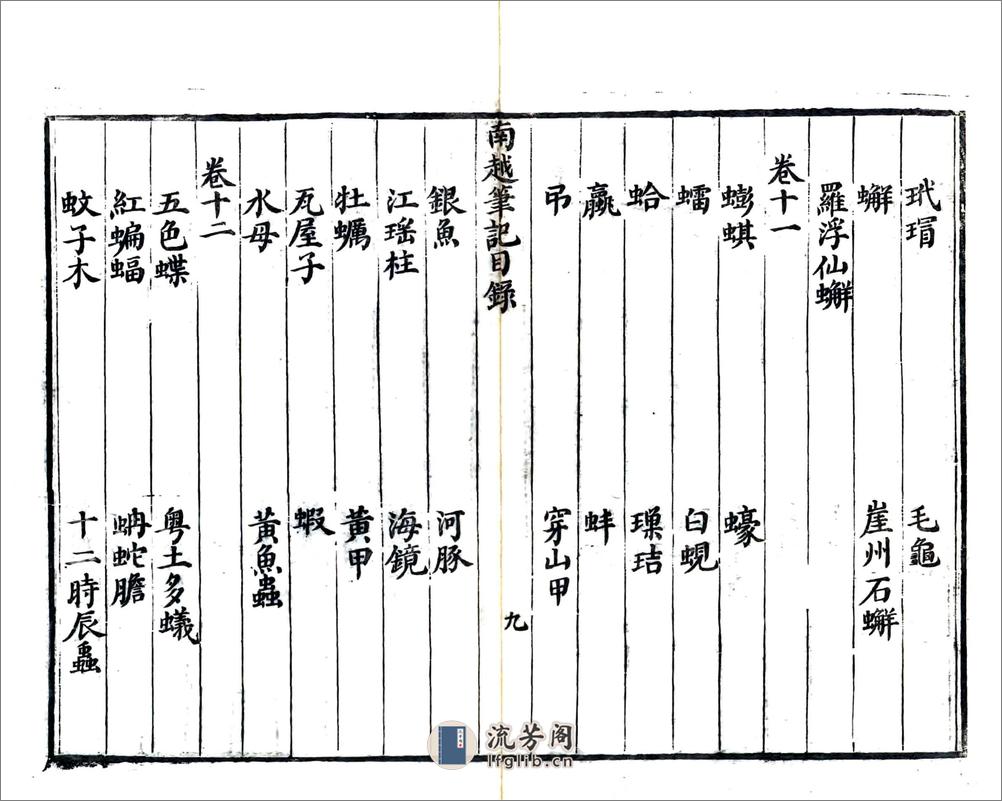 玳瑁　毛龜
蠏　崖州石蠏
羅浮仙蠏
卷十一
蟛蜞　蠔
蠕　白蜆
蛤　璅𤥭
蠃　蚌
吊　穿山甲
南越筆記目錄　九
銀魚　河豚
江瑤柱　海鏡
牡蠣　黃甲
瓦屋子　蝦
水母　黃魚蟲
卷十二
五色蝶　粵土多蟻
紅蝙蝠　蚺蛇膽
蚊子木　十二時辰蟲
流芳阁
lfglib.cn